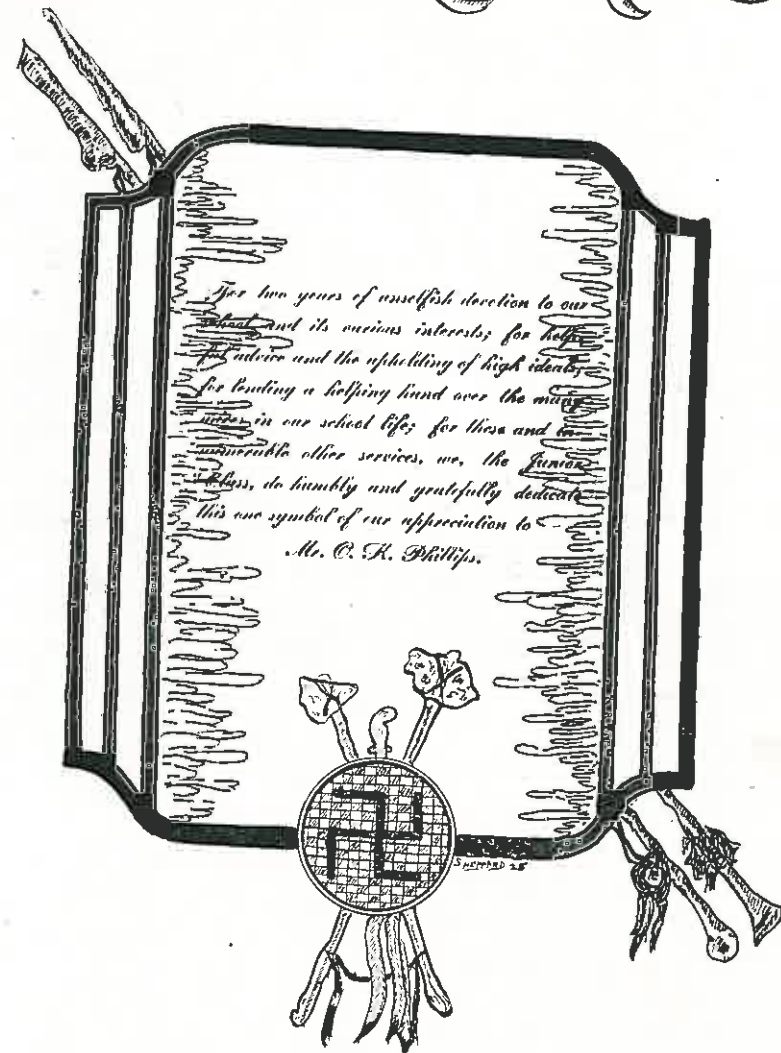 For two years of unselfish devotion to our
school and its various interests; for help-
ful advice and the upholding of high ideals;
for lending a helping hand over the many
mires in our school life; for these and in-
numerable other services, we, the Junior
Class, do humbly and gratefully dedicate
this one symbol of our appreciation to
Mr. O. K. Phillips.
SHEPPARD 25